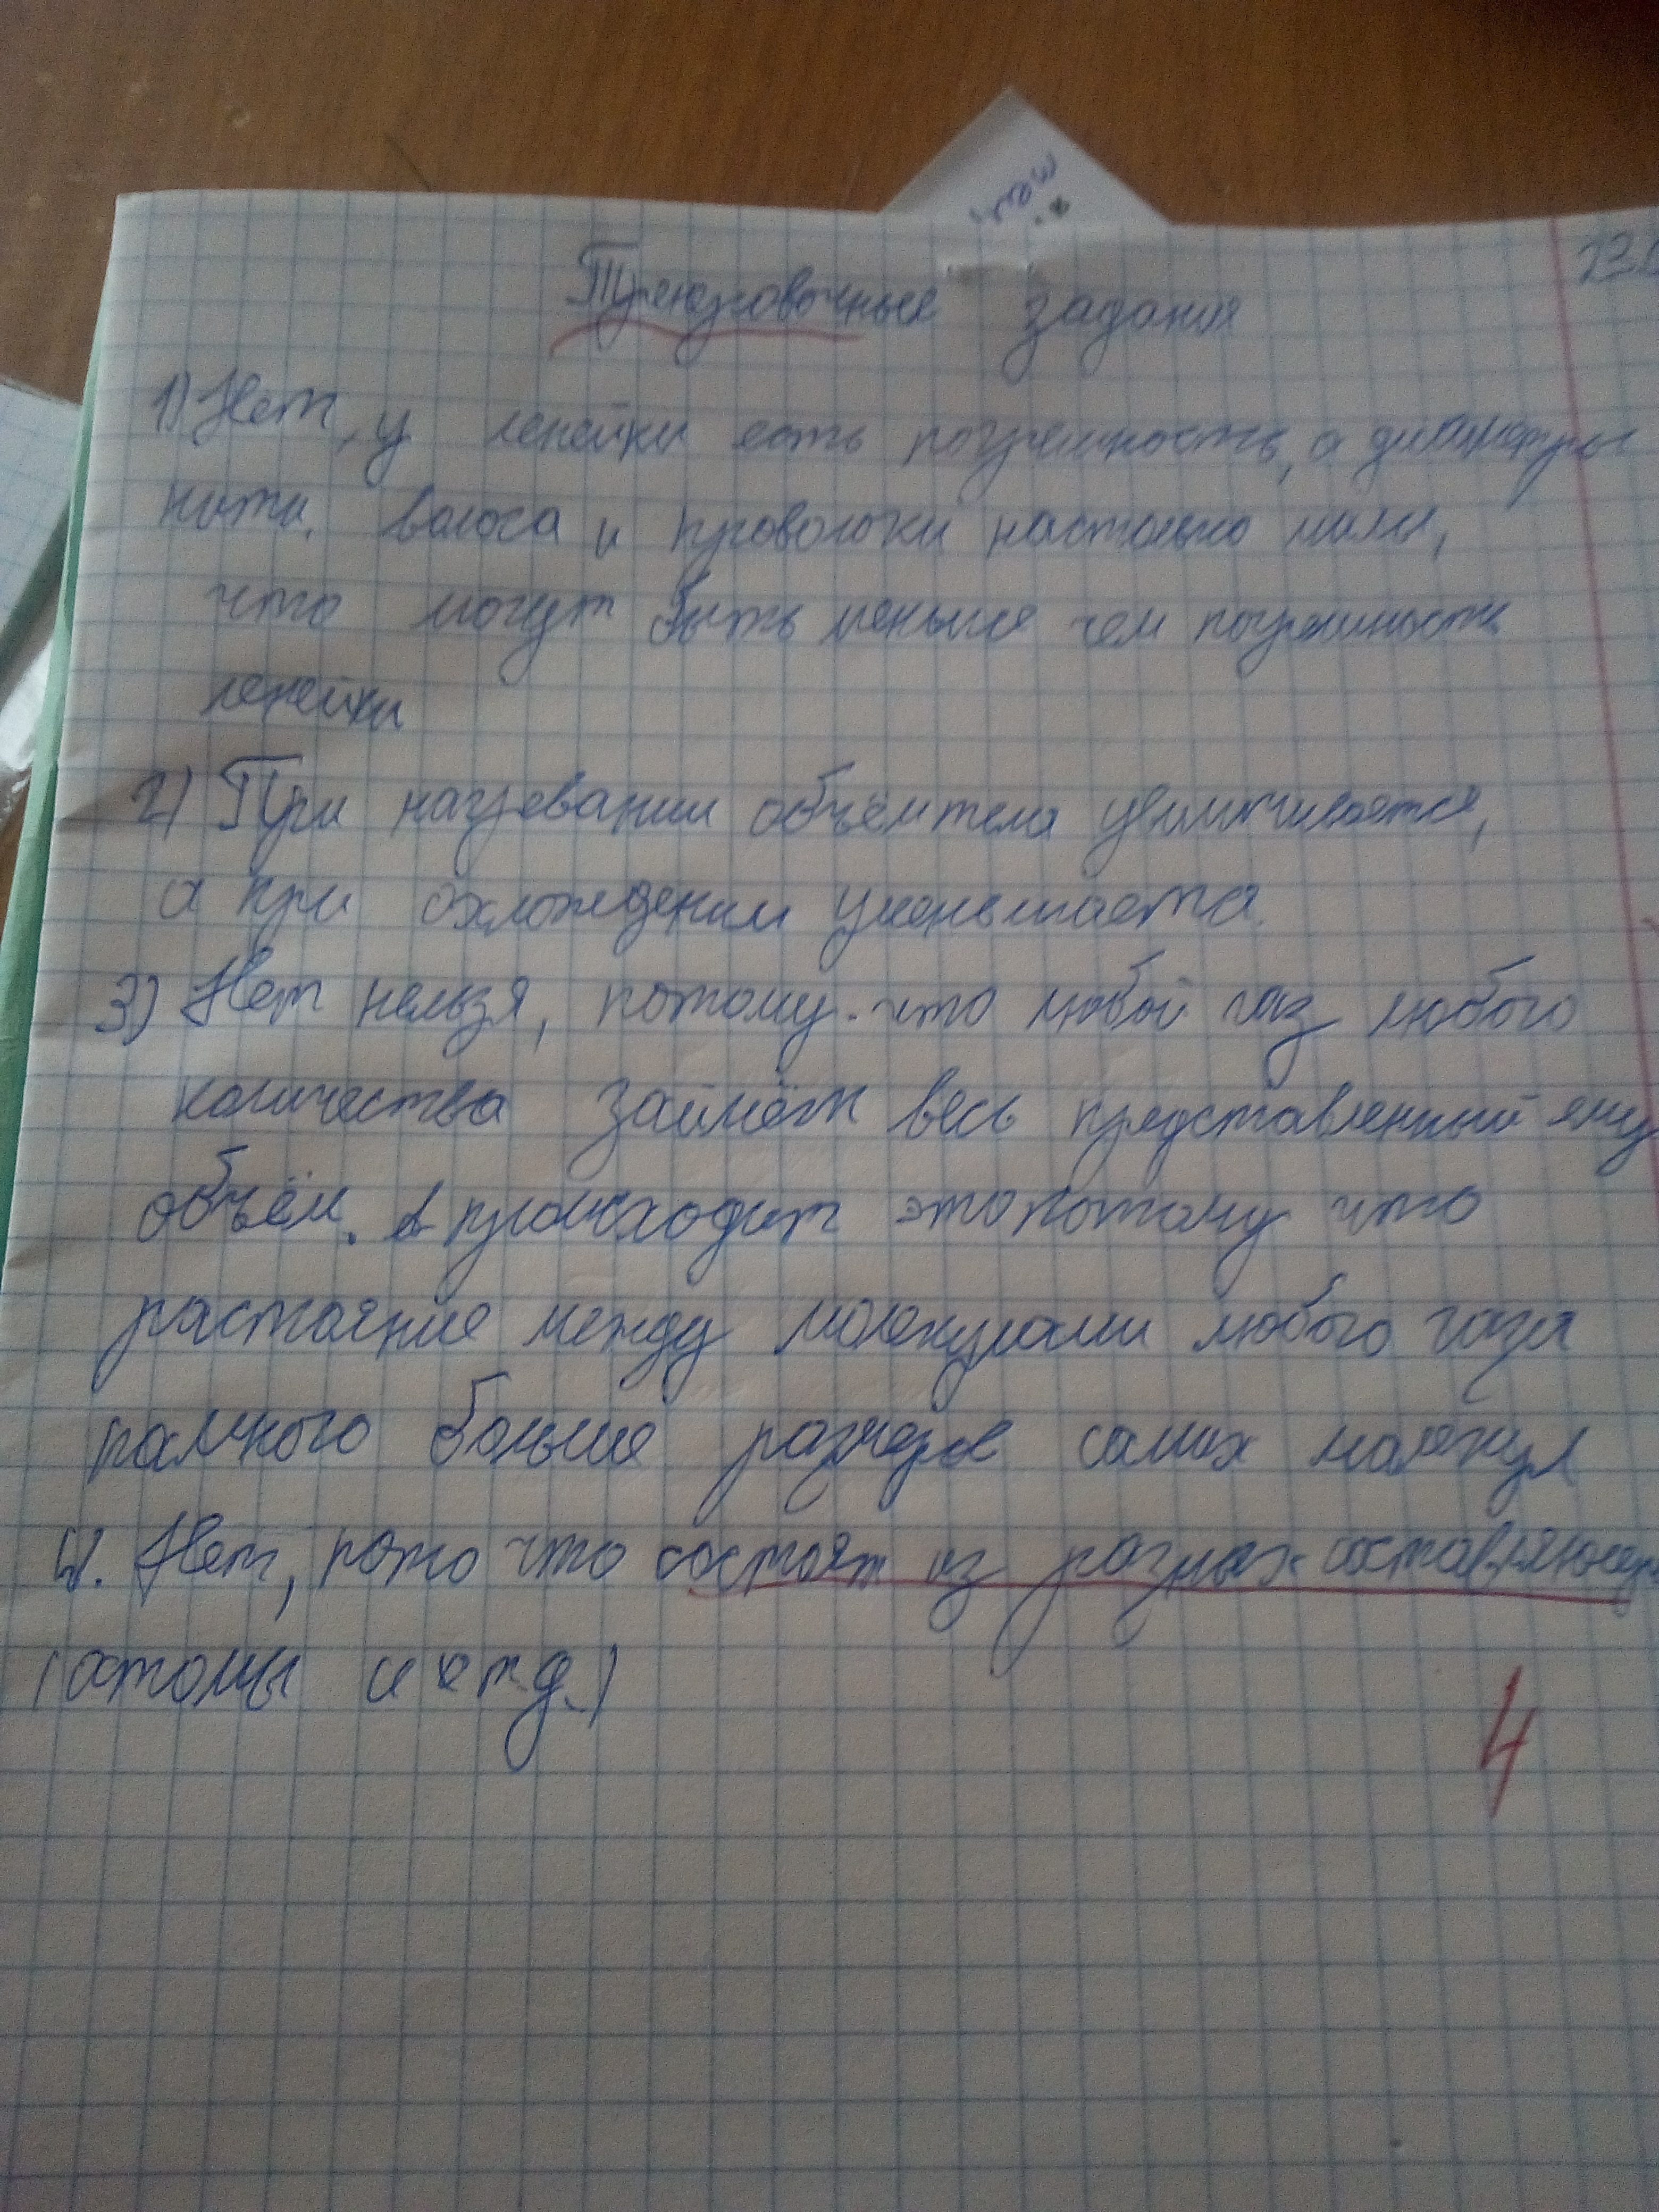 Тренировочные задания
1) Нет, у ленейки есть погрешность, а диаметры
нити, волоса и проволоки настолько малы,
что могут быть меньше чем погрешность
ленейки
2) При нагревании объём тела увиличивается,
а при охлождении уменьшаетса.
3) Нет нельзя, потому-что любой газ любого
количества займёт весь представленный ему
объём. происходит это потому что
растояние между молекулами любого газа
намного больше размеров самих молекул
4. Нет, пото что состоят из разных составляющих
(атомы и т.д.)
4